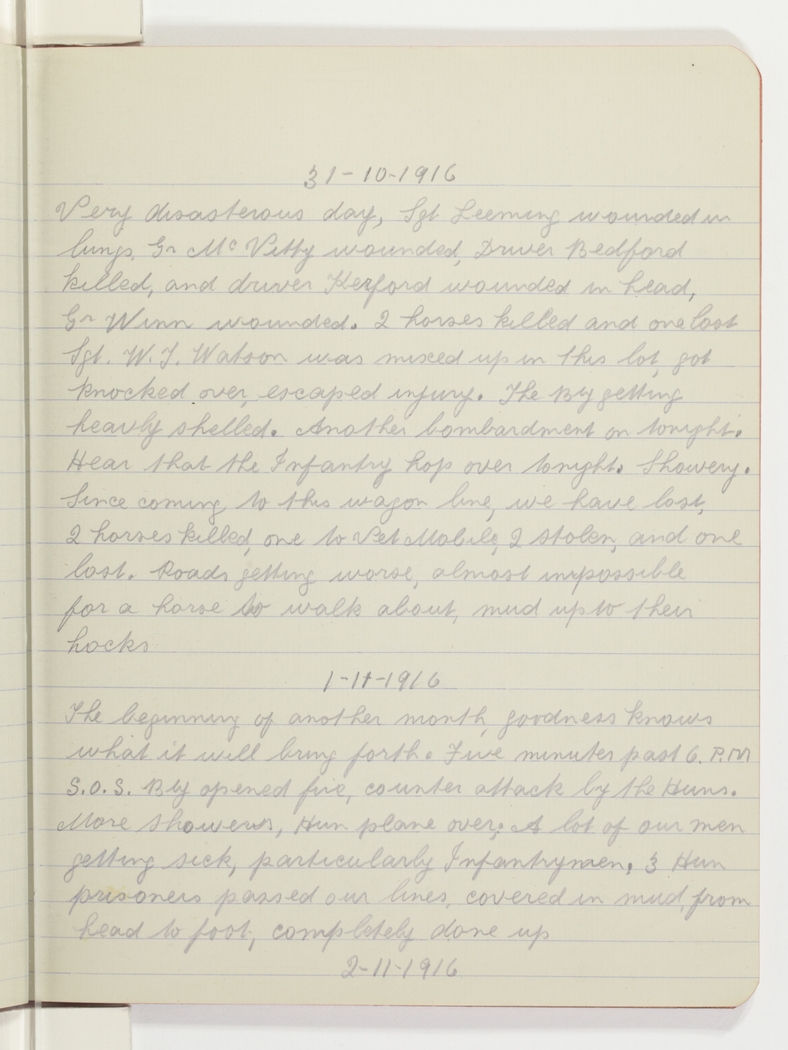 31-10-1916
Very disasterous day, Sgt Leeming wounded in
lungs, Gr McVitty wounded, Driver Bedford
killed, and driver Kerford wounded in head,
Gr Winn wounded. 2 horses killed and one lost
Sgt. W. J. Watson was mixed up in this lot, got
knocked over, escaped injury. The Bty getting
heavly shelled. Another bombardment on tonight.
Hear that the Infantry hop over tonight. Showery.
Since coming to this wagon line, we have lost,
2 horses killed, one to Vet Mobile, 2 stolen, and one
lost. Roads getting worse, almost impossible
for a horse to walk about, mud up to their
hocks
1-11-1916
The beginning of another month, goodness knows
what it will bring forth. Five minutes past 6. P.M
S.O.S. Bty opened fire, counter attack by the Huns.
More showers, Hun plane over. A lot of our men
getting sick, particularly Infantrymen. 3 Hun
prisoners passed our lines, covered in mud, from
head to foot, completely done up
2-11-1916